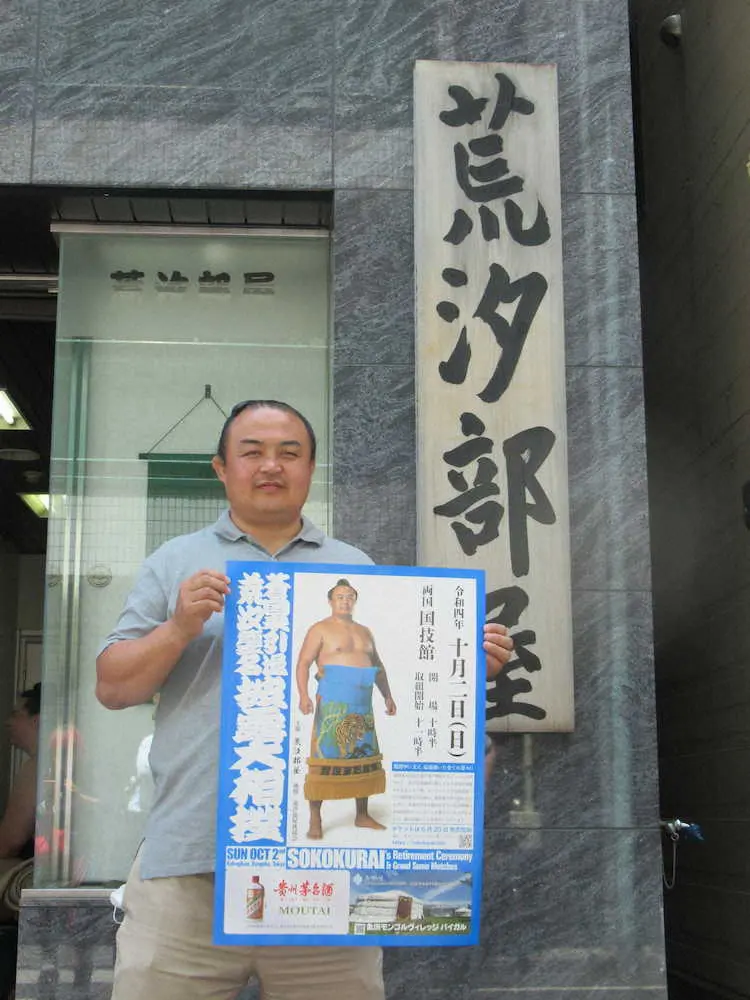 荒汐部屋
荒汐部屋
蒼国来引退
荒汐襲名披露大相撲
令和四年 十月二日(日)
両国 国技館
開場 十時半
取組開始 十一時半
主催 荒汐部屋
SUN OCT 2nd
Kokugikan, Ryogoku, Tokyo
SOKOKURAI's Retirement Ceremony
& Grand Sumo Matches
貴州茅台酒
MOUTAI
モンゴルヴィレッジ バイガル